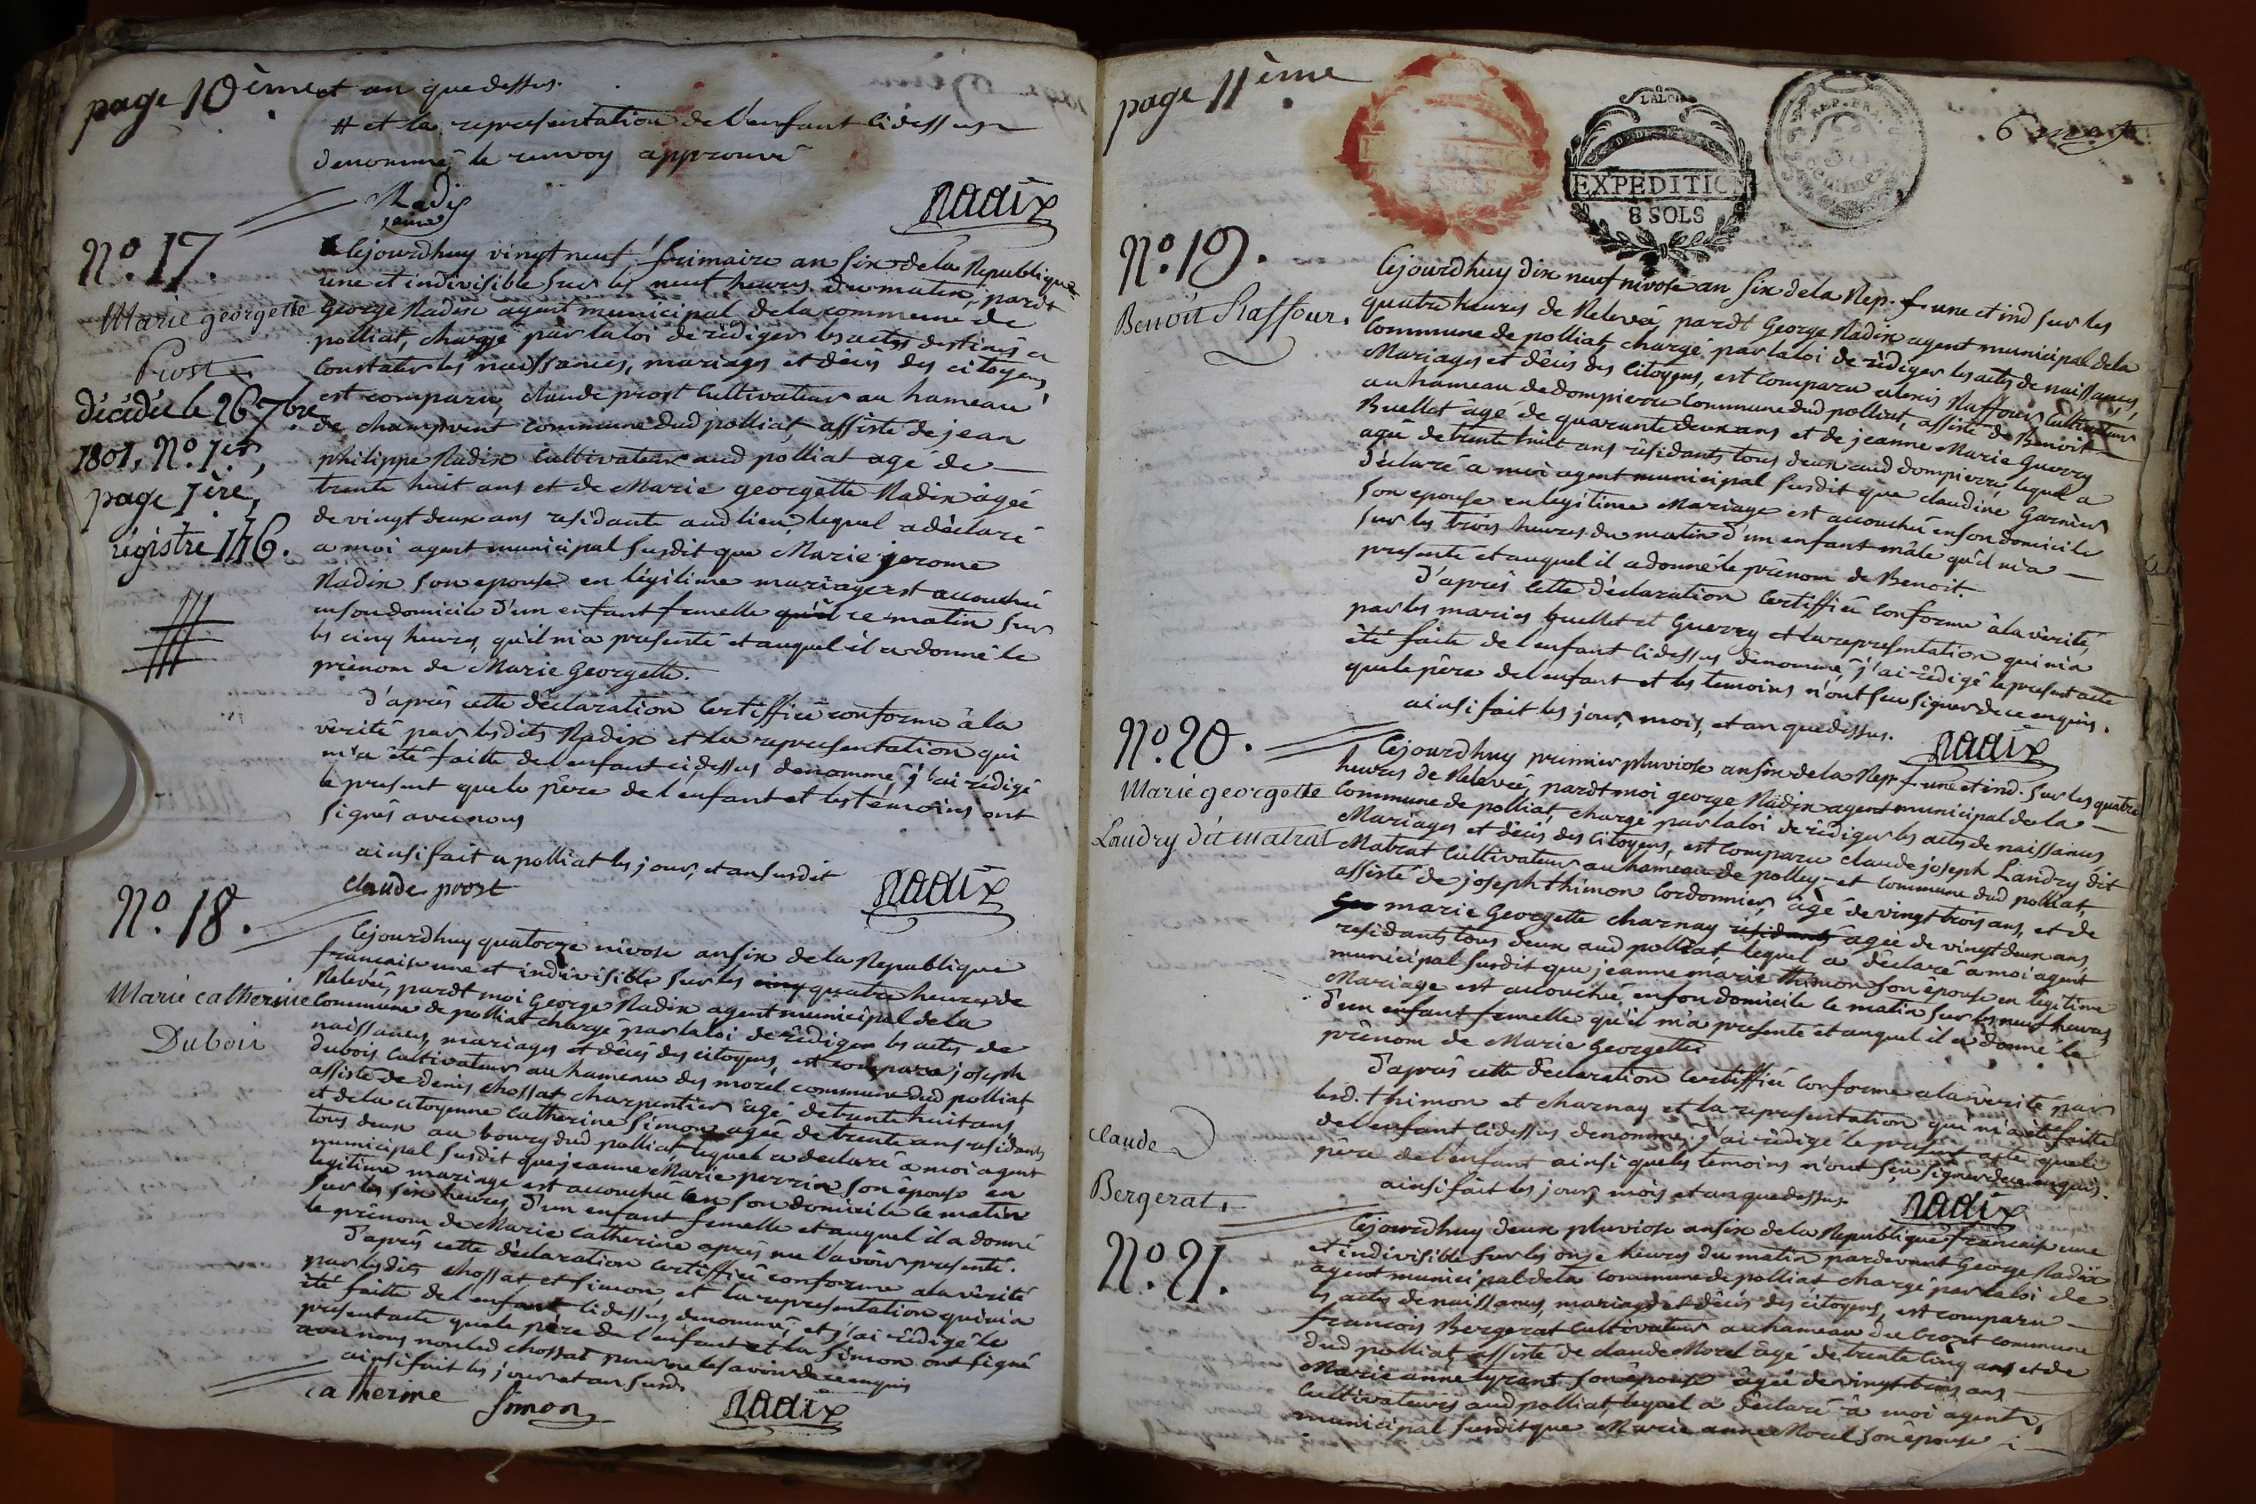 page 10ème
et an que dessus.
# et la representation de l'enfant cidessus
denommé le renvoy approuvé
Nadix
N°. 17.
Marie georgette
Prost.
décédée le 26 7bre
1801, N°. 1er,
page 1ère,
régistre 146.
Cejourdhuy vingt neuf frimaire an six de la Republique
une et indivisible sur les neuf heures du matin, pardt
George Nadix agent municipal de la commune de
polliat, chargé par la loi de rédiger les actes destinés a
Constater les naissances, mariages et décès des citoyens,
est comparu, claude prost Cultivateur au hameau
de champvent commune dud polliat, assisté de jean
philippe Nadix Cultivateur aud polliat agé de
trente huit ans et de Marie georgette Nadix âgée
de vingt deux ans residante aud lieu, lequel a déclaré
a moi agent municipal susdit que Marie jerome
Nadix son epouse en légitime mariage est accouchée
en son domicile d'un enfant femelle ce matin sur
les cinq heures, qu'il m'a presenté et auquel il a donné le
prénom de Marie Georgette.
D'après cette déclaration Certiffiée conforme à la
vérité par lesdits Nadix et la representation qui
m'a été faitte de l'enfant cidessus denommé, j'ai rédigé
le present que le père de l'enfant et les témoins ont
signés avec nous
ainsi fait a polliat les jour, et an susdit
claude prost
Nadix
N°. 18.
Marie catherine
Duboir
Cejourdhuy quatorze nivose an six de la Republique
francaise une et indivisible sur les cinq quatre heures de
Relevée, pardt moi George Nadix agent municipal de la
Commune de polliat chargé par la loi de rédiger les actes de
naissances, mariages et décès des citoyens, est comparu joseph
dubois Cultivateur au hameau des morel commune dud polliat,
assisté de denis chossat charpentier âgé de trente huit ans
et de la citoyenne catherine Simon agée de trente ans residants
tous deux au bourg dud polliat, lequel a declaré a moi agent
municipal susdit que jeanne Marie perrin son épouse en
legitime mariage est accouchée en son domicile ce matin
sur les six heures, d'un enfant femelle et auquel il a donné
le prénom de Marie Catherine après me l'avoir presenté.
D'après cette déclaration certiffiée conforme a la vérité
par lesdits chossat et Simon, et la representation qui m'a
été faitte de l'enfant cidessus denommé, et j'ai rédigé le
present acte que le père de l'enfant et la Simon ont signé
avec nous non led chossat pour ne le savoir de ce enquis
ainsi fait les jour et an susd.
catherine Simon
Nadix
page 11ème
EXPEDITION
8 SOLS
N°. 19.
Benoît Raffour.
Cejourdhuy dix neuf nivose an six de la Rep. f une et ind sur les
quatre heures de Relevée, pardt George Nadix agent municipal de la
Commune de polliat chargé par la loi de rédiger les actes de naissances,
Mariages et décès des Citoyens, est Comparu alexis Raffour Cultivateur
au hameau de dompierre Commune dud polliat, assisté de Benoit
Buellet âgé de quarante deux ans et de jeanne Marie Guerry
agée de trente huit ans résidants tous deux aud dompierre, lequel a
déclaré a moi agent municipal susdit que claudine Garnier
son epouse en legitime Mariage est accouchée en son domicile
sur les trois heures du matin d'un enfant mâle qu'il m'a
presenté et auquel il a donné le prénom de Benoit.
D'après cette déclaration Certiffiée Conforme à la vérité,
par les mariés buellet et Guerry et la representation qui m'a
été faite de l'enfant cidessus dénommé, j'ai rédigé le present acte
que le père de l'enfant et les temoins n'ont seu signer de ce enquis.
ainsi fait les jour, mois, et an que dessus.
Nadix
N°. 20.
Marie georgette
Landry dit matrat
Cejourdhuy premier pluviose an six de la Rep. f une et ind. sur les quatre
heures de Relevée, pardt moi george Nadix agent municipal de la
Commune de polliat, chargé par la loi de rédiger les actes de naissances
Mariages et décès des Citoyens, est Comparu claude joseph Landry dit
Matrat Cultivateur au hameau de polley et commune dud polliat,
assisté de joseph thimon Cordonnier, âgé de vingt trois ans, et de
marie Georgette charnay résidants agée de vingt deux ans
residants tous deux aud polliat, lequel a déclaré à moi agent
municipal susdit que jeanne marie thimon son epouse en legitime
Mariage est accouchée en son domicile le matin sur les neuf heures
d'un enfant femelle qu'il m'a presenté et auquel il a donné le
prénom de Marie Georgette.
D'après cette déclaration Certiffiée Conforme a la vérité par
lesd. thimon et charnay et la representation qui m'a été faitte
de l'enfant cidessus denommé, j'ai rédigé le present acte que le
père de l'enfant ainsi que les temoins n'ont seu signer de ce enquis.
ainsi fait les jour, mois et an que dessus.
Nadix
claude
Bergerat.
N°. 21.
Cejourdhuy deux pluviose an six de la Republique francaise une
et indivisible sur les onze heures du matin pardevant George Nadix
agent municipal de la Commune de polliat chargé par la loi de
les actes de naissances, mariages et décès des citoyens, est comparu
francois Bergerat Cultivateur au hameau du Crozet commune
dud polliat, assisté de claude Morel âgé de trente cinq ans et de
Marie anne tyrant son épouse âgée de vingt trois ans
Cultivateurs aud polliat, lequel a déclaré à moi agent
municipal susdit que Marie anne Morel son épouse